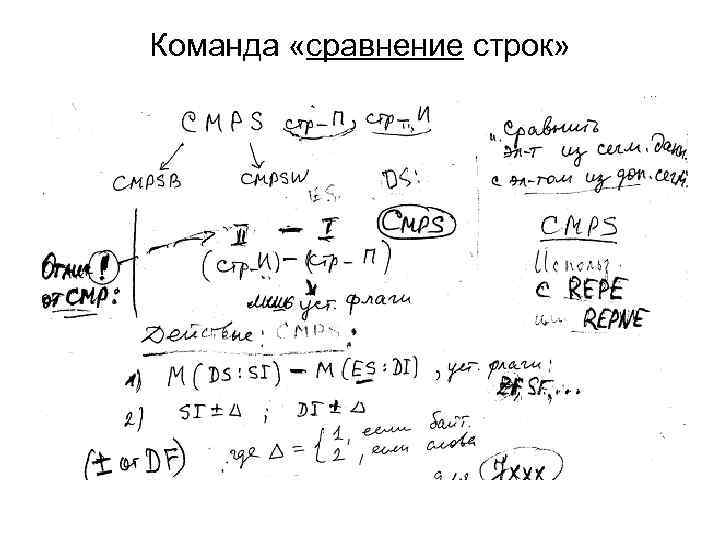 Команда «сравнение строк»
CMPS стр-П, стр-И
CMPSB CMPSW
ES: DS:
"Сравнить
эл-т из сегм. данн.
с эл-том из доп. сегм.
II — I CMPS
(стр-И) – (стр-П)
уст. флаги
от CMP:
CMPS
Использ.
с REPE
или REPNE
Действие: CMPS.
1) M(DS:SI) – M(ES:DI), уст. флаги:
ZF, SF, ...
2) SI ± Δ ; DI ± Δ
(± от DF)
, где Δ = { 1, если байт.
2, если слова
для Jxxx